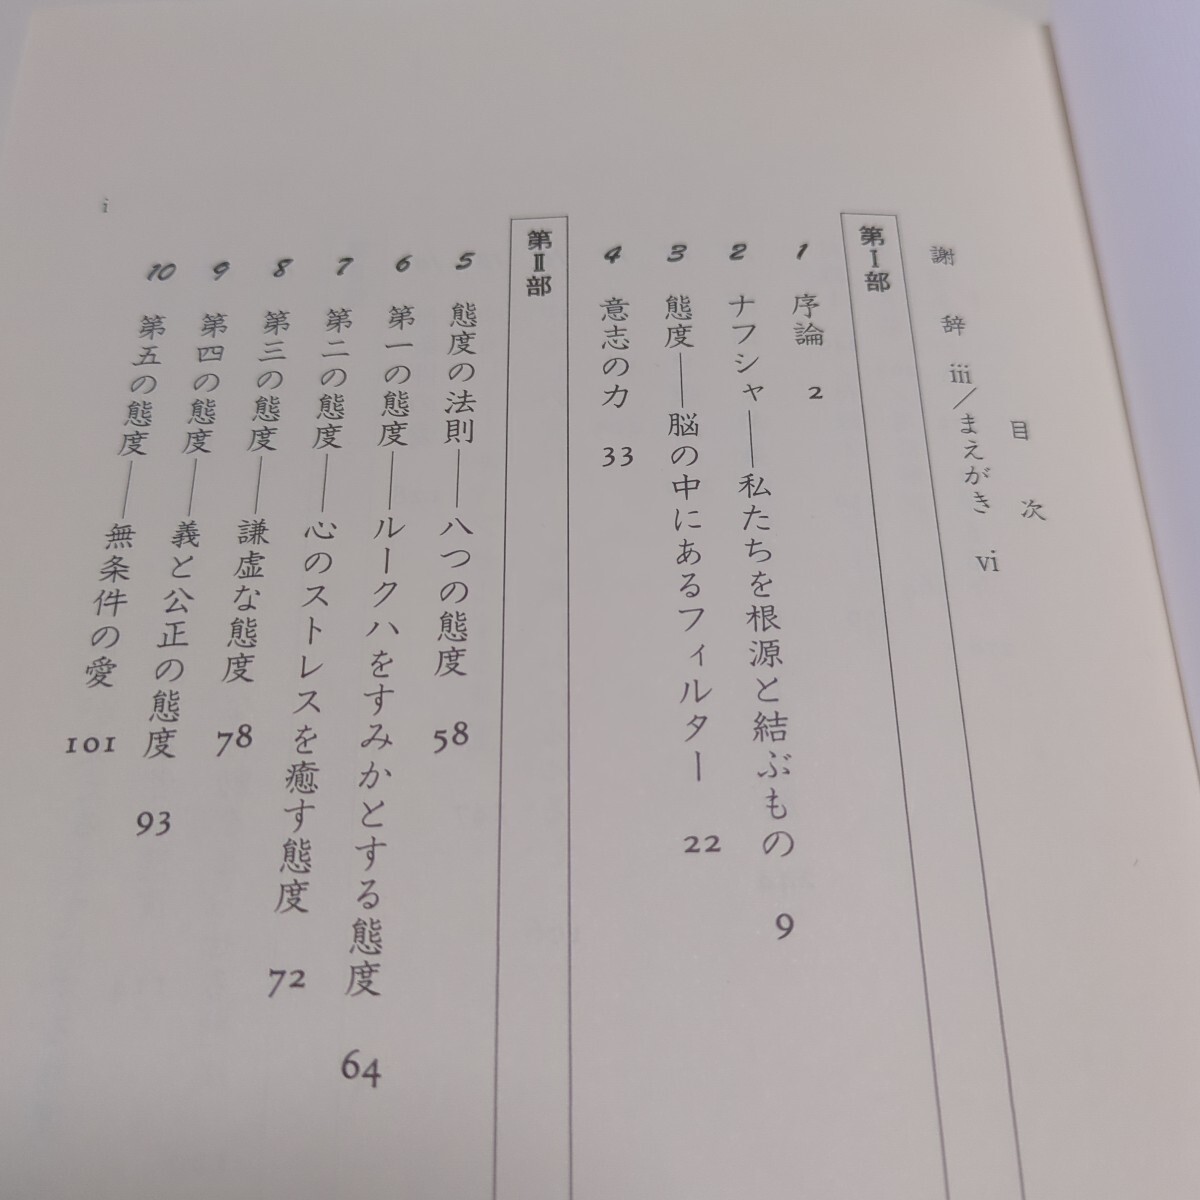 目次
謝辞 ⅲ／まえがき ⅵ
第Ⅰ部
1 序論 2
2 ナフシャ――私たちを根源と結ぶもの 9
3 態度――脳の中にあるフィルター 22
4 意志の力 33
第Ⅱ部
5 態度の法則――八つの態度 58
6 第一の態度――ルークハをすみかとする態度 64
7 第二の態度――心のストレスを癒す態度 72
8 第三の態度――謙虚な態度 78
9 第四の態度――義と公正の態度 93
10 第五の態度――無条件の愛 101
i